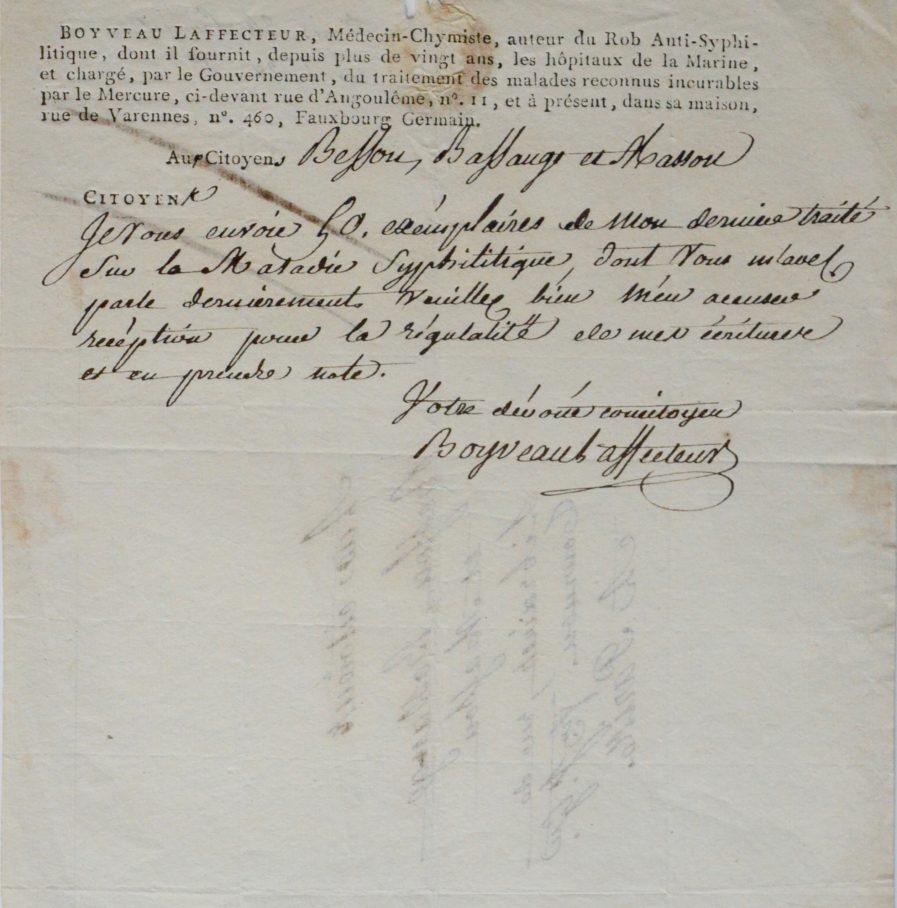 BOYVEAU LAFFECTEUR, Médecin-Chymiste, auteur du Rob Anti-Syphi-
litique, dont il fournit, depuis plus de vingt ans, les hôpitaux de la Marine,
et chargé, par le Gouvernement, du traitement des malades reconnus incurables
par le Mercure, ci-devant rue d'Angoulême, n°. 11, et à présent, dans sa maison,
rue de Varennes, n°. 460, Fauxbourg Germain.
Aux Citoyens Besson, Bassange et Masson
CITOYENS
Je vous envoie 50. exémplaires de mon dernier traité
sur la Maladie Syphilitique, dont vous m'avez
parlé dernierement. Veuillez bien m'en accuser
récéption pour la régulalité de mes écritures
et en prendre note.
Votre dévoué concitoyen
Boyveau Laffecteur